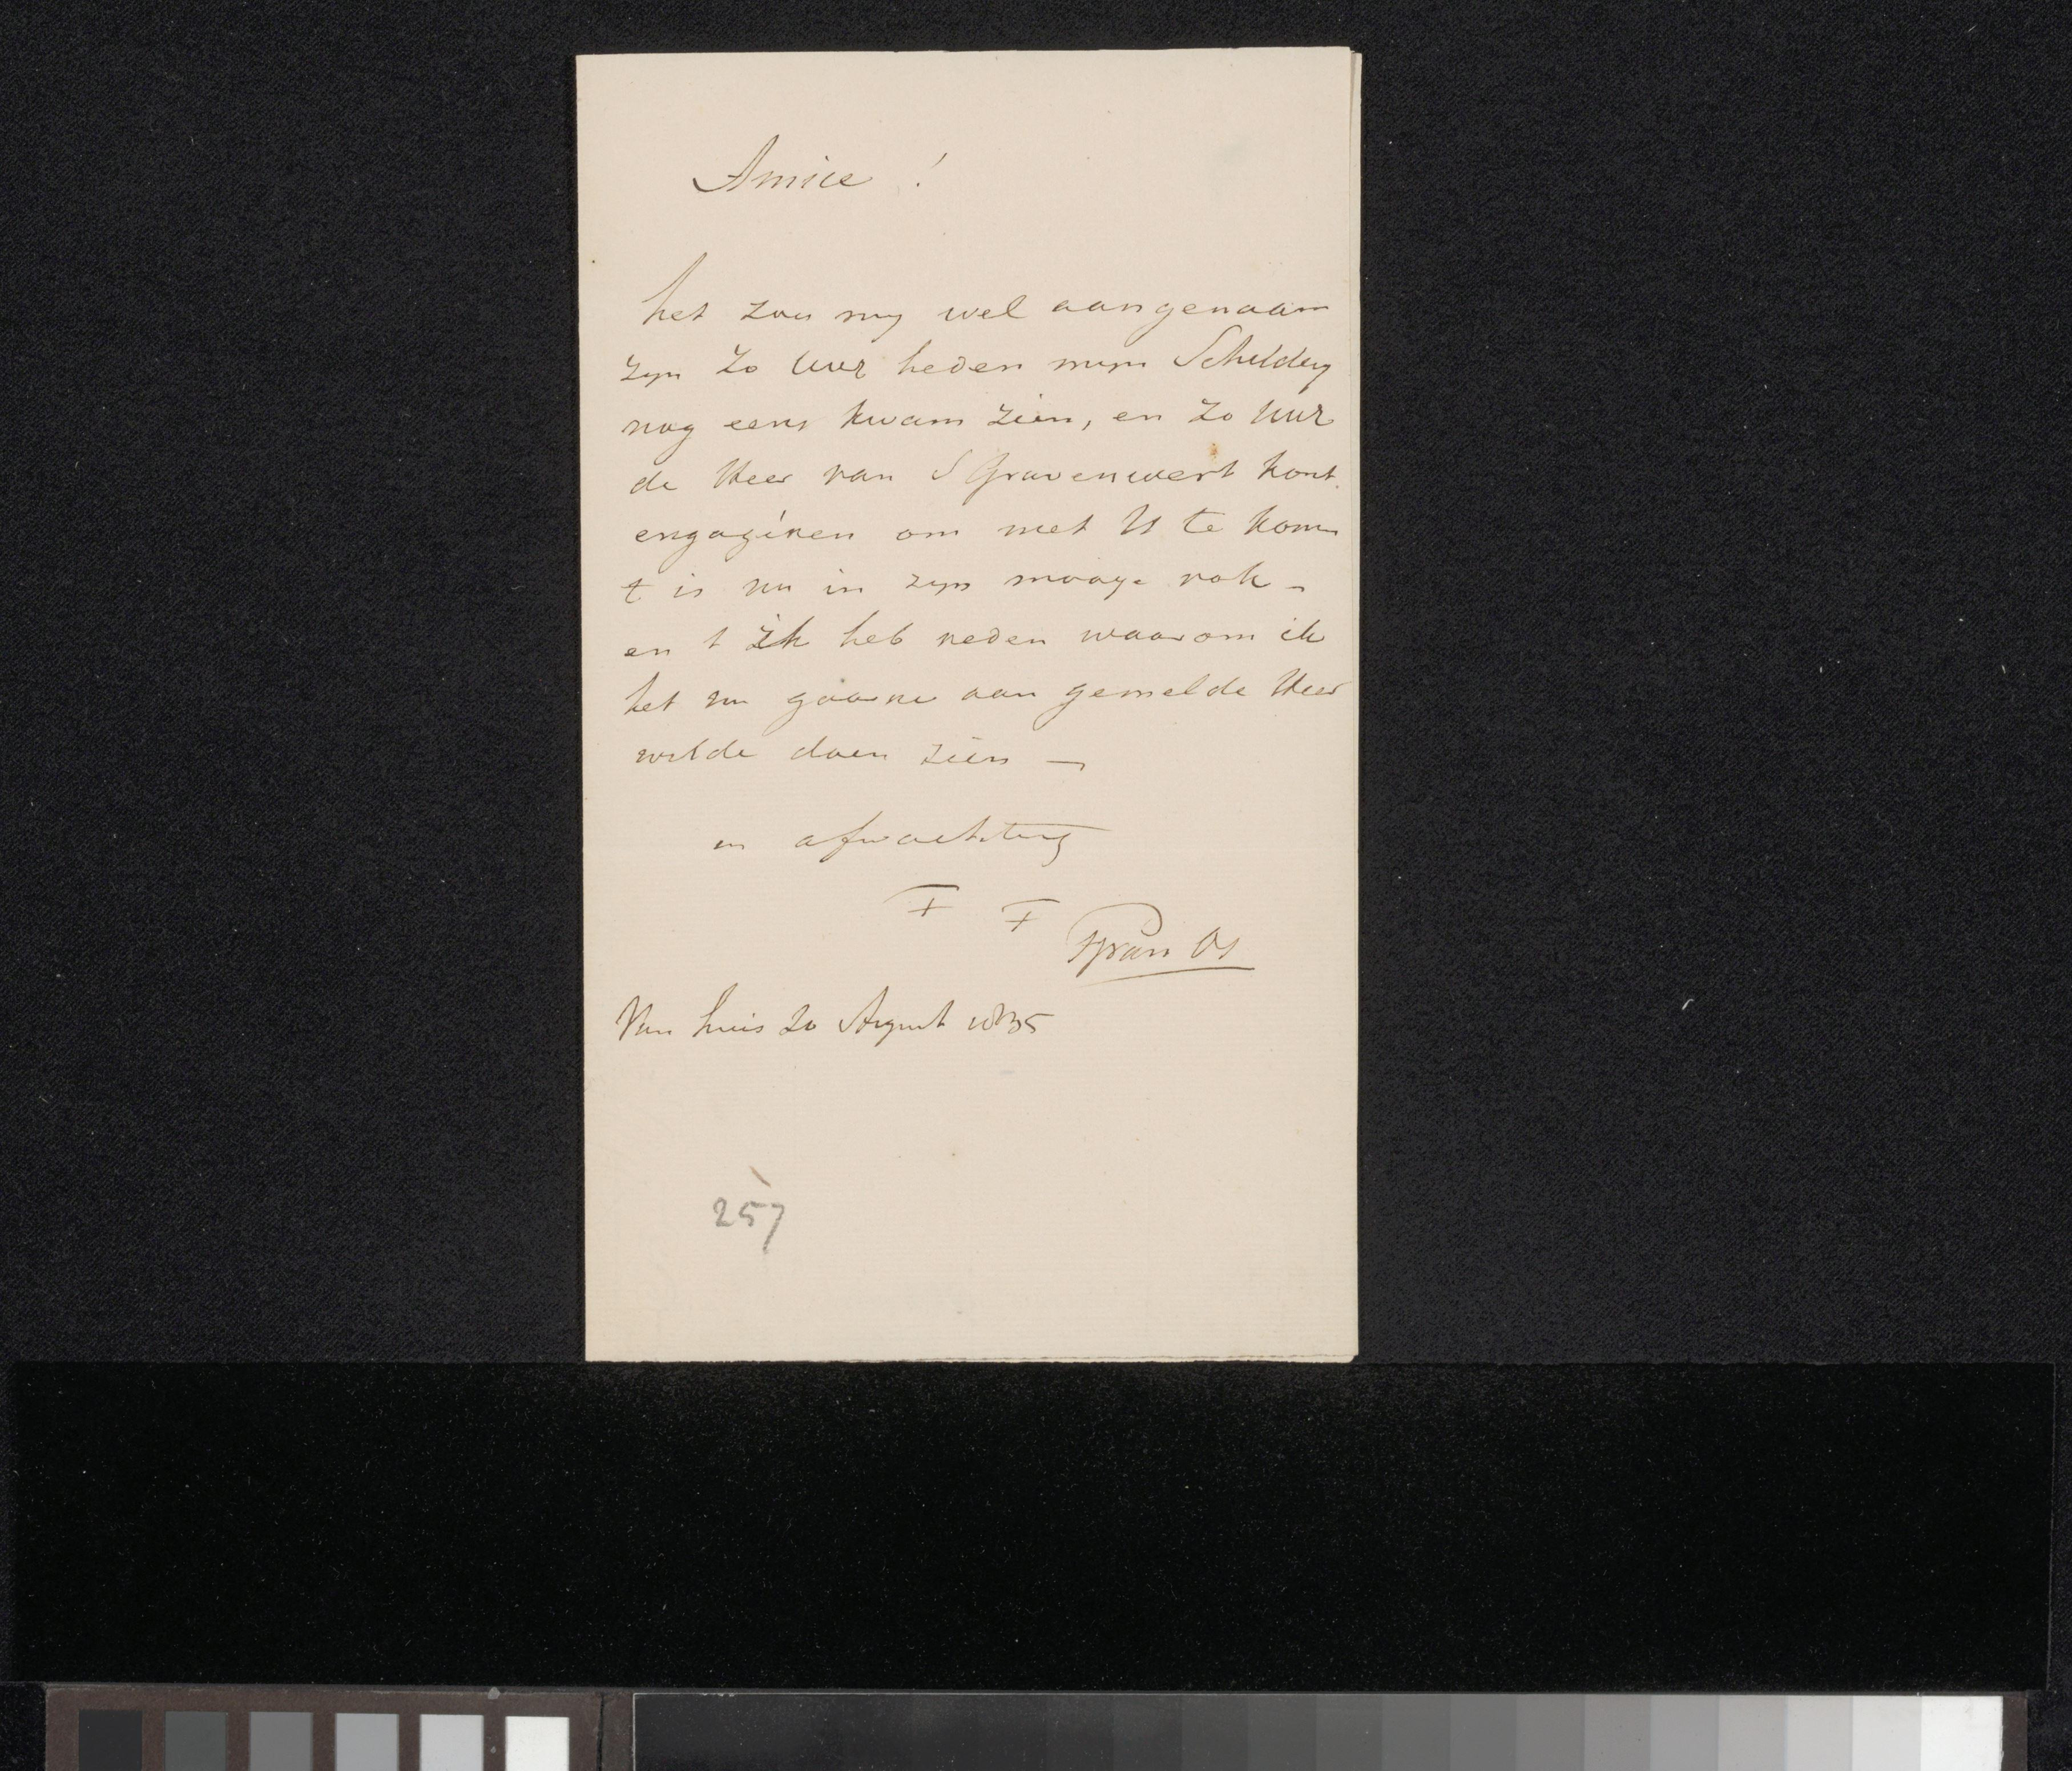 Amice !
het zou my wel aangenaam
zyn zo UWE heden myn Schildery
nog eens kwam zien, en zo UWE
de Heer van S Gravenwert kont
engagéren om met U te komen
t is nu in zyn mooye rok –
en t ik heb reden waarom ik
het nu gaarne aan gemelde Heer
wilde doen zien –
in afwachting
T T
PGvan Os
Van huis 20 August 1835
257